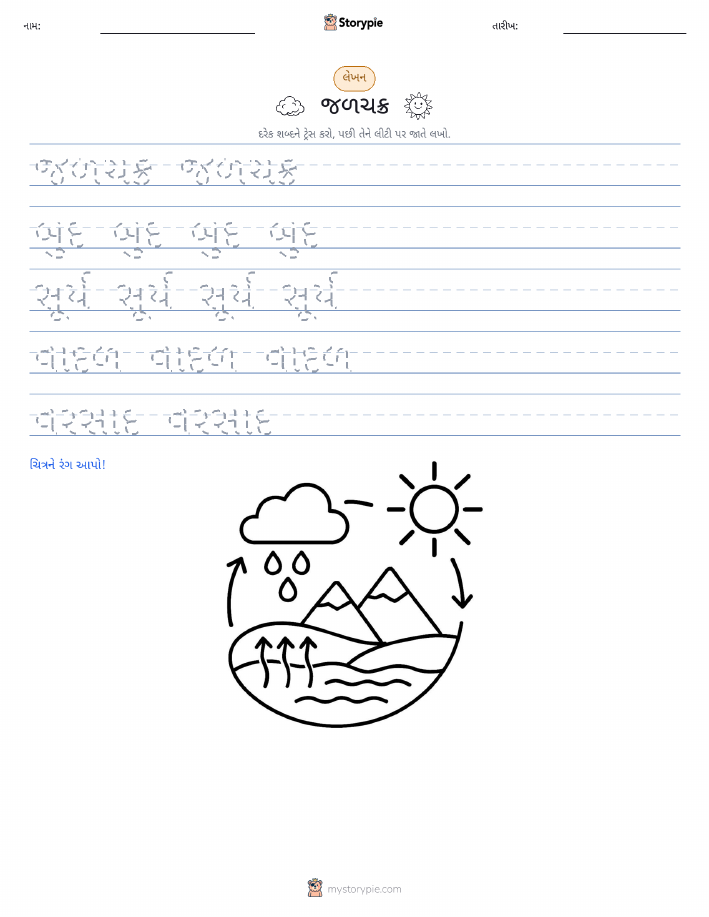 નામ: Storypie તારીખ:
લેખન
જળચક્ર
દરેક શબ્દને ટ્રેસ કરો, પછી તેને લીટી પર જાતે લખો.
જળચક્ર જળચક્ર
બુંદ બુંદ બુંદ બુંદ
સૂર્ય સૂર્ય સૂર્ય સૂર્ય
વાદળ વાદળ વાદળ
વરસાદ વરસાદ
ચિત્રને રંગ આપો!
mystorypie.com